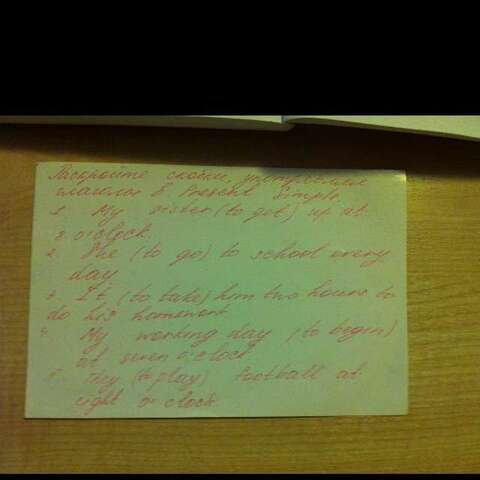 Раскройте скобки, употребляя
глаголы в Present Simple
1. My sister (to get) up at
8 o'clock.
2. She (to go) to school every
day
3. It (to take) him two hours to
do his homework
4. My working day (to begin)
at seven o'clock
5. They (to play) football at
eight o'clock.